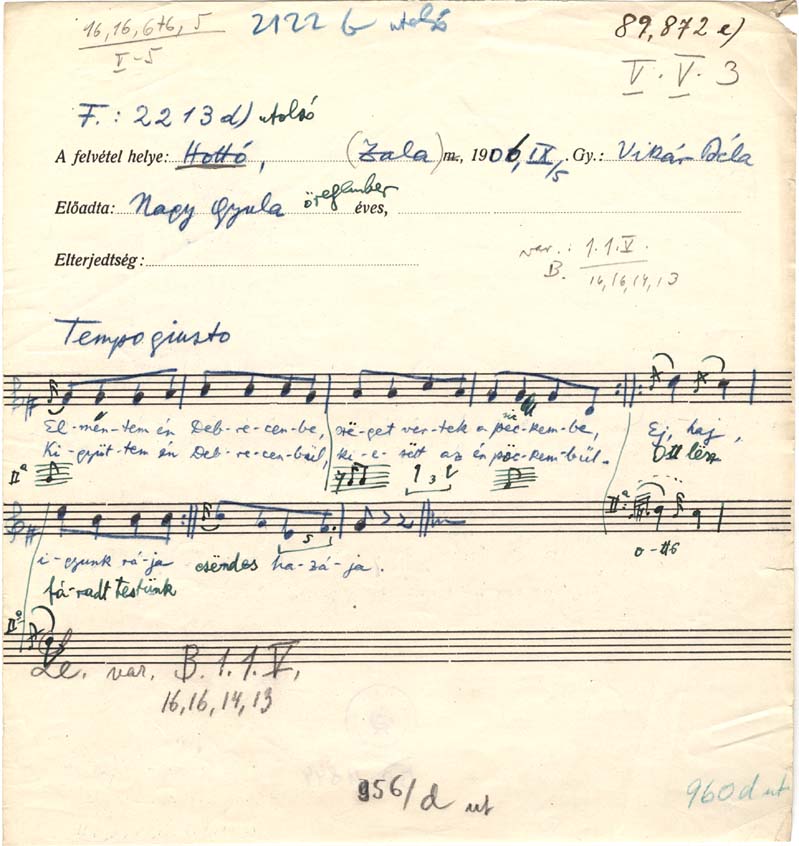 16,16,6+6,5
V-5
2122 b utolsó
89,872 e)
V. V. 3
F.: 2213 d) utolsó
A felvétel helye: Hottó, (Zala) m., 1906, IX/5 .Gy.: Vikár Béla
Előadta: Nagy Gyula öregember éves,
Elterjedtség:
var.: 1.1.V.
B. 16,16,14,13
Tempo giusto
El-mén-tem én Deb-re-cen-be, szë-get ver-tek a pëc-kem-be, Ej, haj,
Ki-gyüt-tem én Deb-re-cen-bűl, ki-e-sëtt az én pöc-kem-bűl. Ott lësz
II a
3
II a
i-gyunk rá-ja csëndes ha-zá-ja.
fá-radt testünk
5
II a
Le. var. B.1.1.V,
16,16,14,13
956/d ut
960 d ut